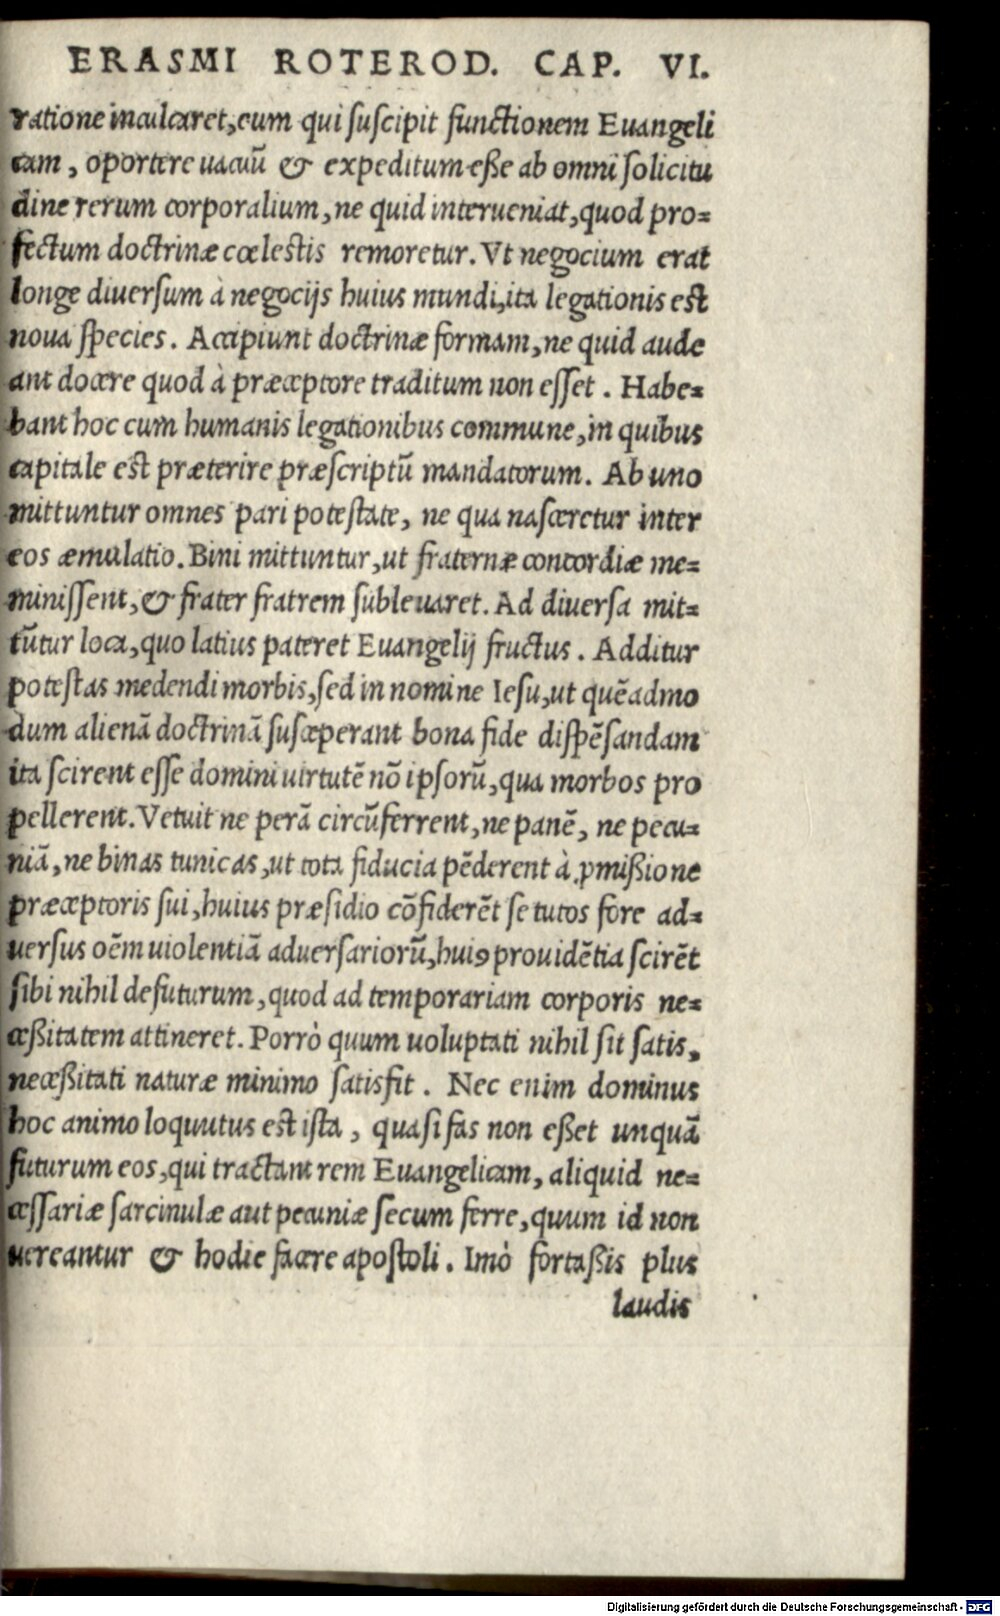 ERASMI ROTEROD. CAP. VI.
ratione inculcaret, eum qui suscipit functionem Euangeli
cam, oportere uacuũ & expeditum eße ab omni solicitu
dine rerum corporalium, ne quid interueniat, quod pro=
fectum doctrinæ cœlestis remoretur. Vt negocium erat
longe diuersum à negocijs huius mundi, ita legationis est
noua species. Accipiunt doctrinæ formam, ne quid aude
ant docere quod à præceptore traditum non esset. Habe=
bant hoc cum humanis legationibus commune, in quibus
capitale est præterire præscriptũ mandatorum. Ab uno
mittuntur omnes pari potestate, ne qua nasceretur inter
eos æmulatio. Bini mittuntur, ut fraternæ concordiæ me=
minissent, & frater fratrem subleuaret. Ad diuersa mit=
tũtur loca, quo latius pateret Euangelij fructus. Additur
potestas medendi morbis, sed in nomine Iesu, ut quẽadmo
dum alienã doctrinã susceperant bona fide dispẽsandam
ita scirent esse domini uirtutẽ nõ ipsorũ, qua morbos pro
pellerent. Vetuit ne perã circũferrent, ne panẽ, ne pecu=
niã, ne binas tunicas, ut tota fiducia pẽderent à ꝓmißione
præceptoris sui, huius præsidio cõfiderẽt se tutos fore ad=
uersus oẽm uiolentiã aduersariorũ, huiꝯ prouidẽtia scirẽt
sibi nihil defuturum, quod ad temporariam corporis ne=
ceßitatem attineret. Porrò quum uoluptati nihil sit satis,
neceßitati naturæ minimo satisfit. Nec enim dominus
hoc animo loquutus est ista, quasi fas non eßet unquã
futurum eos, qui tractant rem Euangelicam, aliquid ne=
cessariæ sarcinulæ aut pecuniæ secum ferre, quum id non
uereantur & hodie facere apostoli. Imò fortaßis plus
laudis
Digitalisierung gefördert durch die Deutsche Forschungsgemeinschaft - DFG